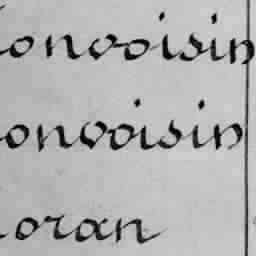 onvoisin
onvoisin
oran